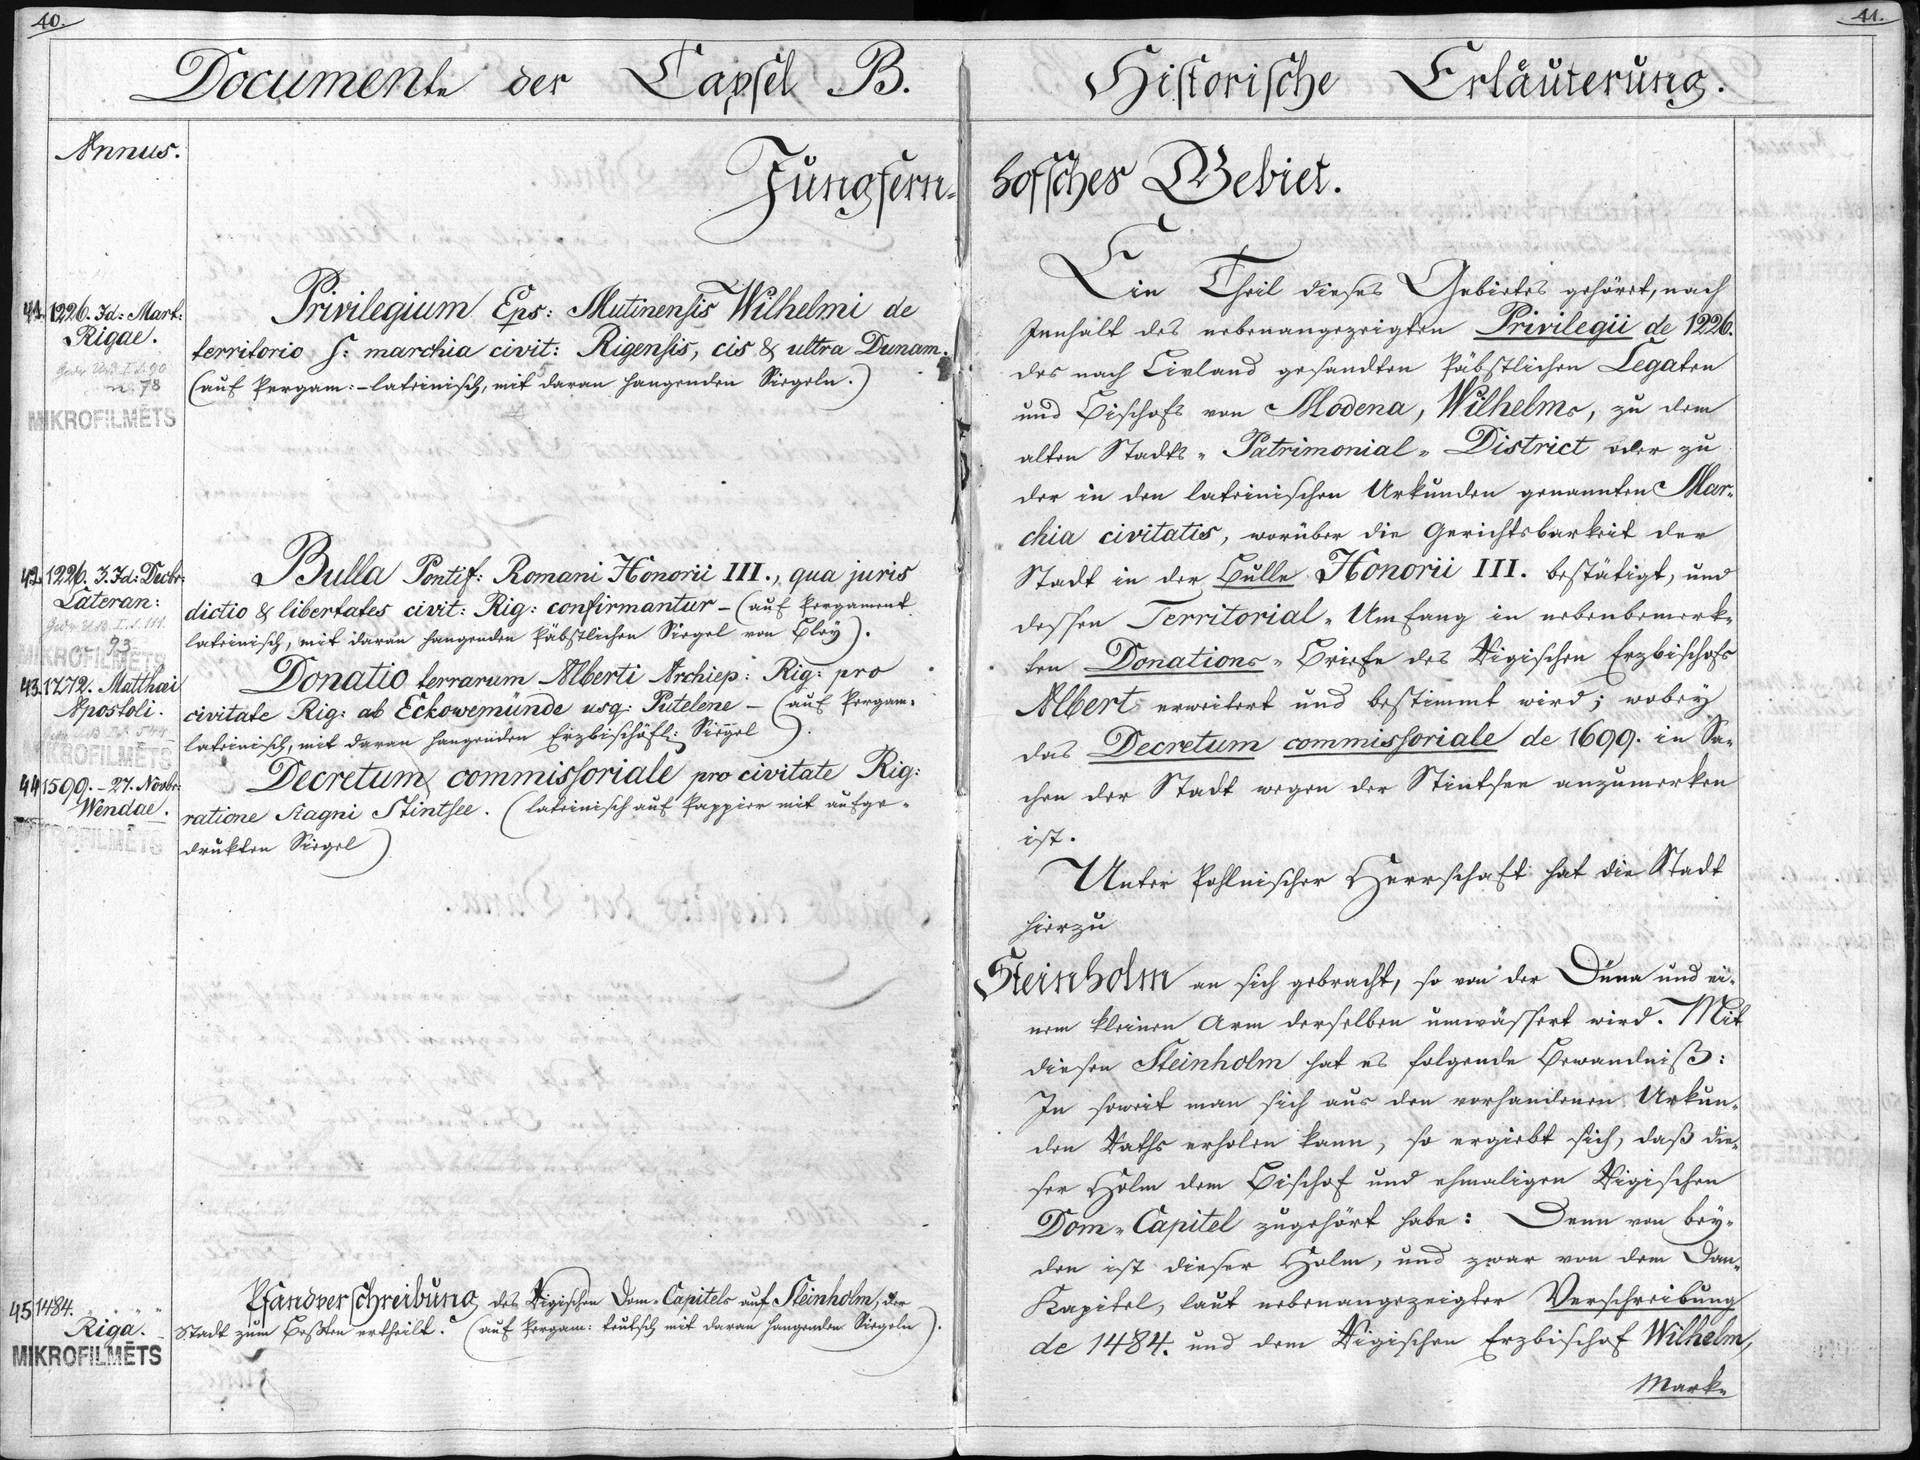 40.
Documente der Capsel B.
Annus.
Jungfern-
41. 1226. Id: Mart:
Rigae.
Privilegium Eps: Mutinensis Wilhelmi de
territorio s: marchia civit: Rigensis, cis & ultra Dunam.
(auf Pergam: - lateinisch, mit daran hangenden Siegeln.)
n. 78
MIKROFILMĒTS
42. 1226. 3. Id: Decbr:
Lateran:
Bulla Pontif: Romani Honorii III., qua juris
dictio & libertates civit: Rig: confirmantur - (auf Pergament
lateinisch, mit daran hangenden Päbstlichen Siegel von Bley).
93
MIKROFILMĒTS
43. 1272. Matthaei
Apostoli.
Donatio terrarum Alberti Archiep: Rig: pro
civitate Rig: ab Eckowemünde usq: Putelene - (auf Pergam-
lateinisch, mit daran hangenden Erzbischöfl: Siegel).
MIKROFILMĒTS
44. 1599. - 27. Novbr:
Wendae.
Decretum commissoriale pro civitate Rig:
ratione stagni Stintsee. (lateinisch auf Pappier mit aufge-
drukten Siegel)
MIKROFILMĒTS
45. 1484.
Rigä.
Pfandverschreibung des Rigischen Dom-Capitels auf Steinholm, der
Stadt zum Besten ertheilt. (auf Pergam: teutsch mit daran hangenden Siegeln).
MIKROFILMĒTS
41.
Historische Erläuterung.
hofsches Gebiet.
Ein Theil dieses Gebietes gehöret, nach
Innhalt des nebenangezeigten Privilegii de 1226.
des nach Livland gesandten Päbstlichen Legaten
und Bischofs von Modena, Wilhelms, zu dem
alten Stadts-Patrimonial-District oder zu
der in den lateinischen Urkunden genannten Mar-
chia civitatis, worüber die Gerichtsbarkeit der
Stadt in der Bulle Honorii III. bestätigt, und
dessen Territorial-Umfang in nebenbemerk-
ten Donations-Briefe des Rigischen Erzbischofs
Albert erweitert und bestimmt wird; wobey
das Decretum commissoriale de 1699. in Sa-
chen der Stadt wegen der Stintsee anzumerken
ist.
Unter Pohlnischer Herrschaft hat die Stadt
hierzu
Steinholm an sich gebracht, so von der Düna und ei-
nem kleinen Arm derselben umwässert wird. Mit
diesen Steinholm hat es folgende Bewandniß:
In soweit man sich aus den vorhandenen Urkun-
den Raths erholen kann, so ergiebt sich, daß die-
ser Holm dem Bischof und ehmaligen Rigischen
Dom-Capitel zugehört habe: Denn von bey-
den ist dieser Holm, und zwar von dem Dom-
Kapitel, laut nebenangezeigter Verschreibung
de 1484. und dem Rigischen Erzbischof Wilhelm,
Mark-